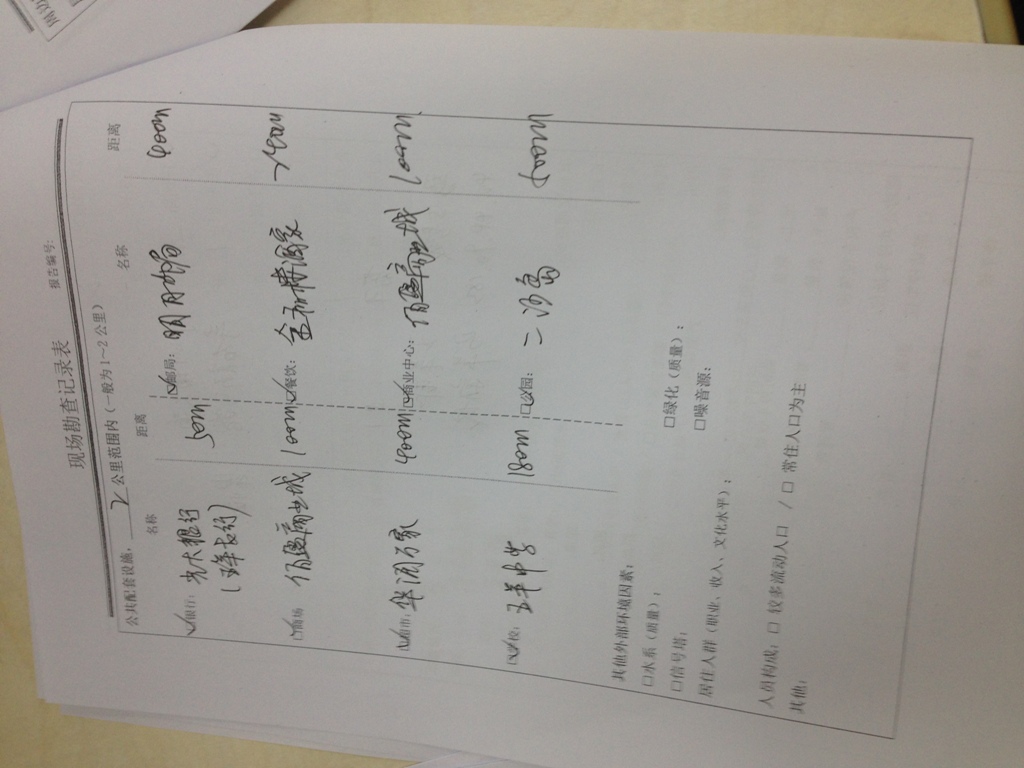 现场勘查记录表
报告编号:
公共配套设施: 2 公里范围内(一般为1~2公里)
名称 距离 名称 距离
☑银行: 光大银行 50m ☑邮局: 明月邮局 400m
☑商场 佰盛商城 100m ☑餐饮: 700m
☑超市: 华润万家 400m ☑商业中心: 100m
☑学校: 中学 180m ☑公园: 二沙岛 500m
其他外部环境因素:
□水系(质量): □绿化(质量):
□信号塔: □噪音源:
居住人群(职业、收入、文化水平):
人员构成: □ 较多流动人口 / □ 常住人口为主
其他: